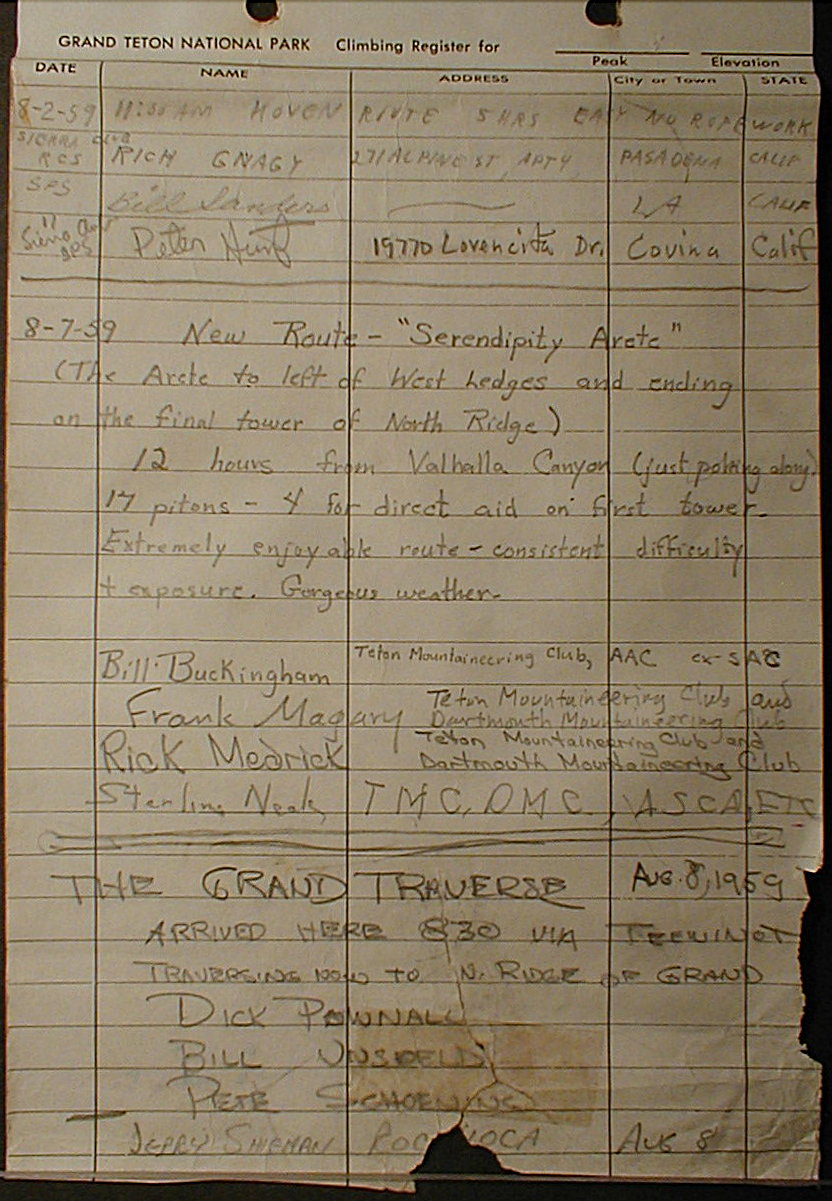 GRAND TETON NATIONAL PARK Climbing Register for
Peak Elevation
DATE NAME ADDRESS City or Town STATE
8-2-59 11:30 AM HOVEN ROUTE 5 HRS EASY NO ROPEWORK
SIERRA CLUB
RCS RICH GNAGY 271 ALPINE ST, APT 4, PASADENA CALIF
SPS Bill Sanders LA CALIF
"
Sierra Club
SPS Peter Hunt 19770 Lovencita Dr. Covina Calif
8-7-59 New Route - "Serendipity Arete"
(The Arete to left of West Ledges and ending
on the final tower of North Ridge)
12 hours from Valhalla Canyon (just poking along)
17 pitons - 4 for direct aid on first tower.
Extremely enjoyable route - consistent difficulty
+ exposure. Gorgeous weather.
Bill Buckingham Teton Mountaineering Club, AAC ex-SAC
Frank Magary Teton Mountaineering Club and
Dartmouth Mountaineering Club
Rick Medrick Teton Mountaineering Club and
Dartmouth Mountaineering Club
Sterling Neale TMC, DMC, ASCA, ETC
THE GRAND TRAVERSE AUG. 8, 1959
ARRIVED HERE 830 VIA TEEWINOT
TRAVERSING NOW TO N. RIDGE OF GRAND
DICK POWNALL
BILL UNSOELD
PETE SCHOENING
JERRY AUG 8